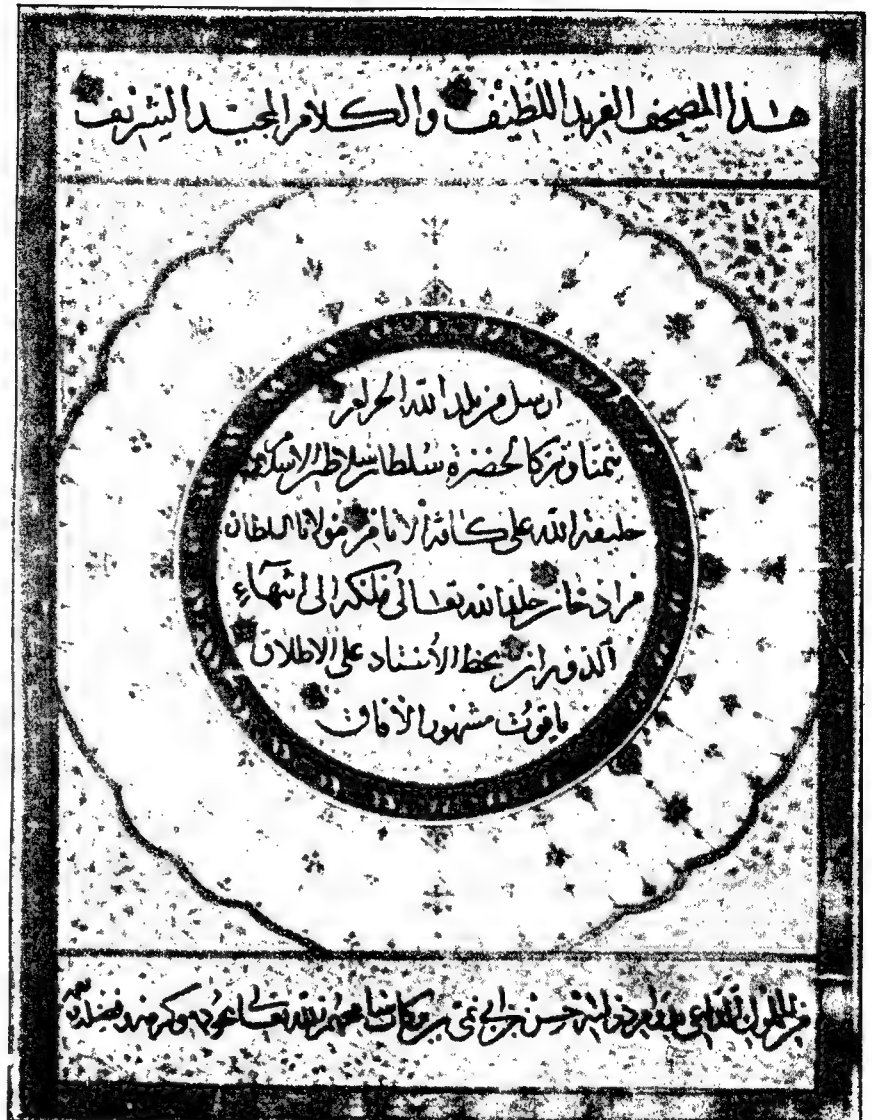 هذا المصحف الفريد اللطيف والكلام المجيد الشريف
ارسل من بلد الله الحرام
تيمنا وتبركا لحضرة سلطان سلاطين الاسلام
خليفة الله على كافة الانام مولانا السلطان
مراد خان خلد الله تعالى ملكه الى انتهاء
الدوران بخط الاستاد على الاطلاق
ياقوت مشهور الآفاق
من المملوك الداعي دولته حسن بن ابي نمي بن بركات الله تعالى وكرمه